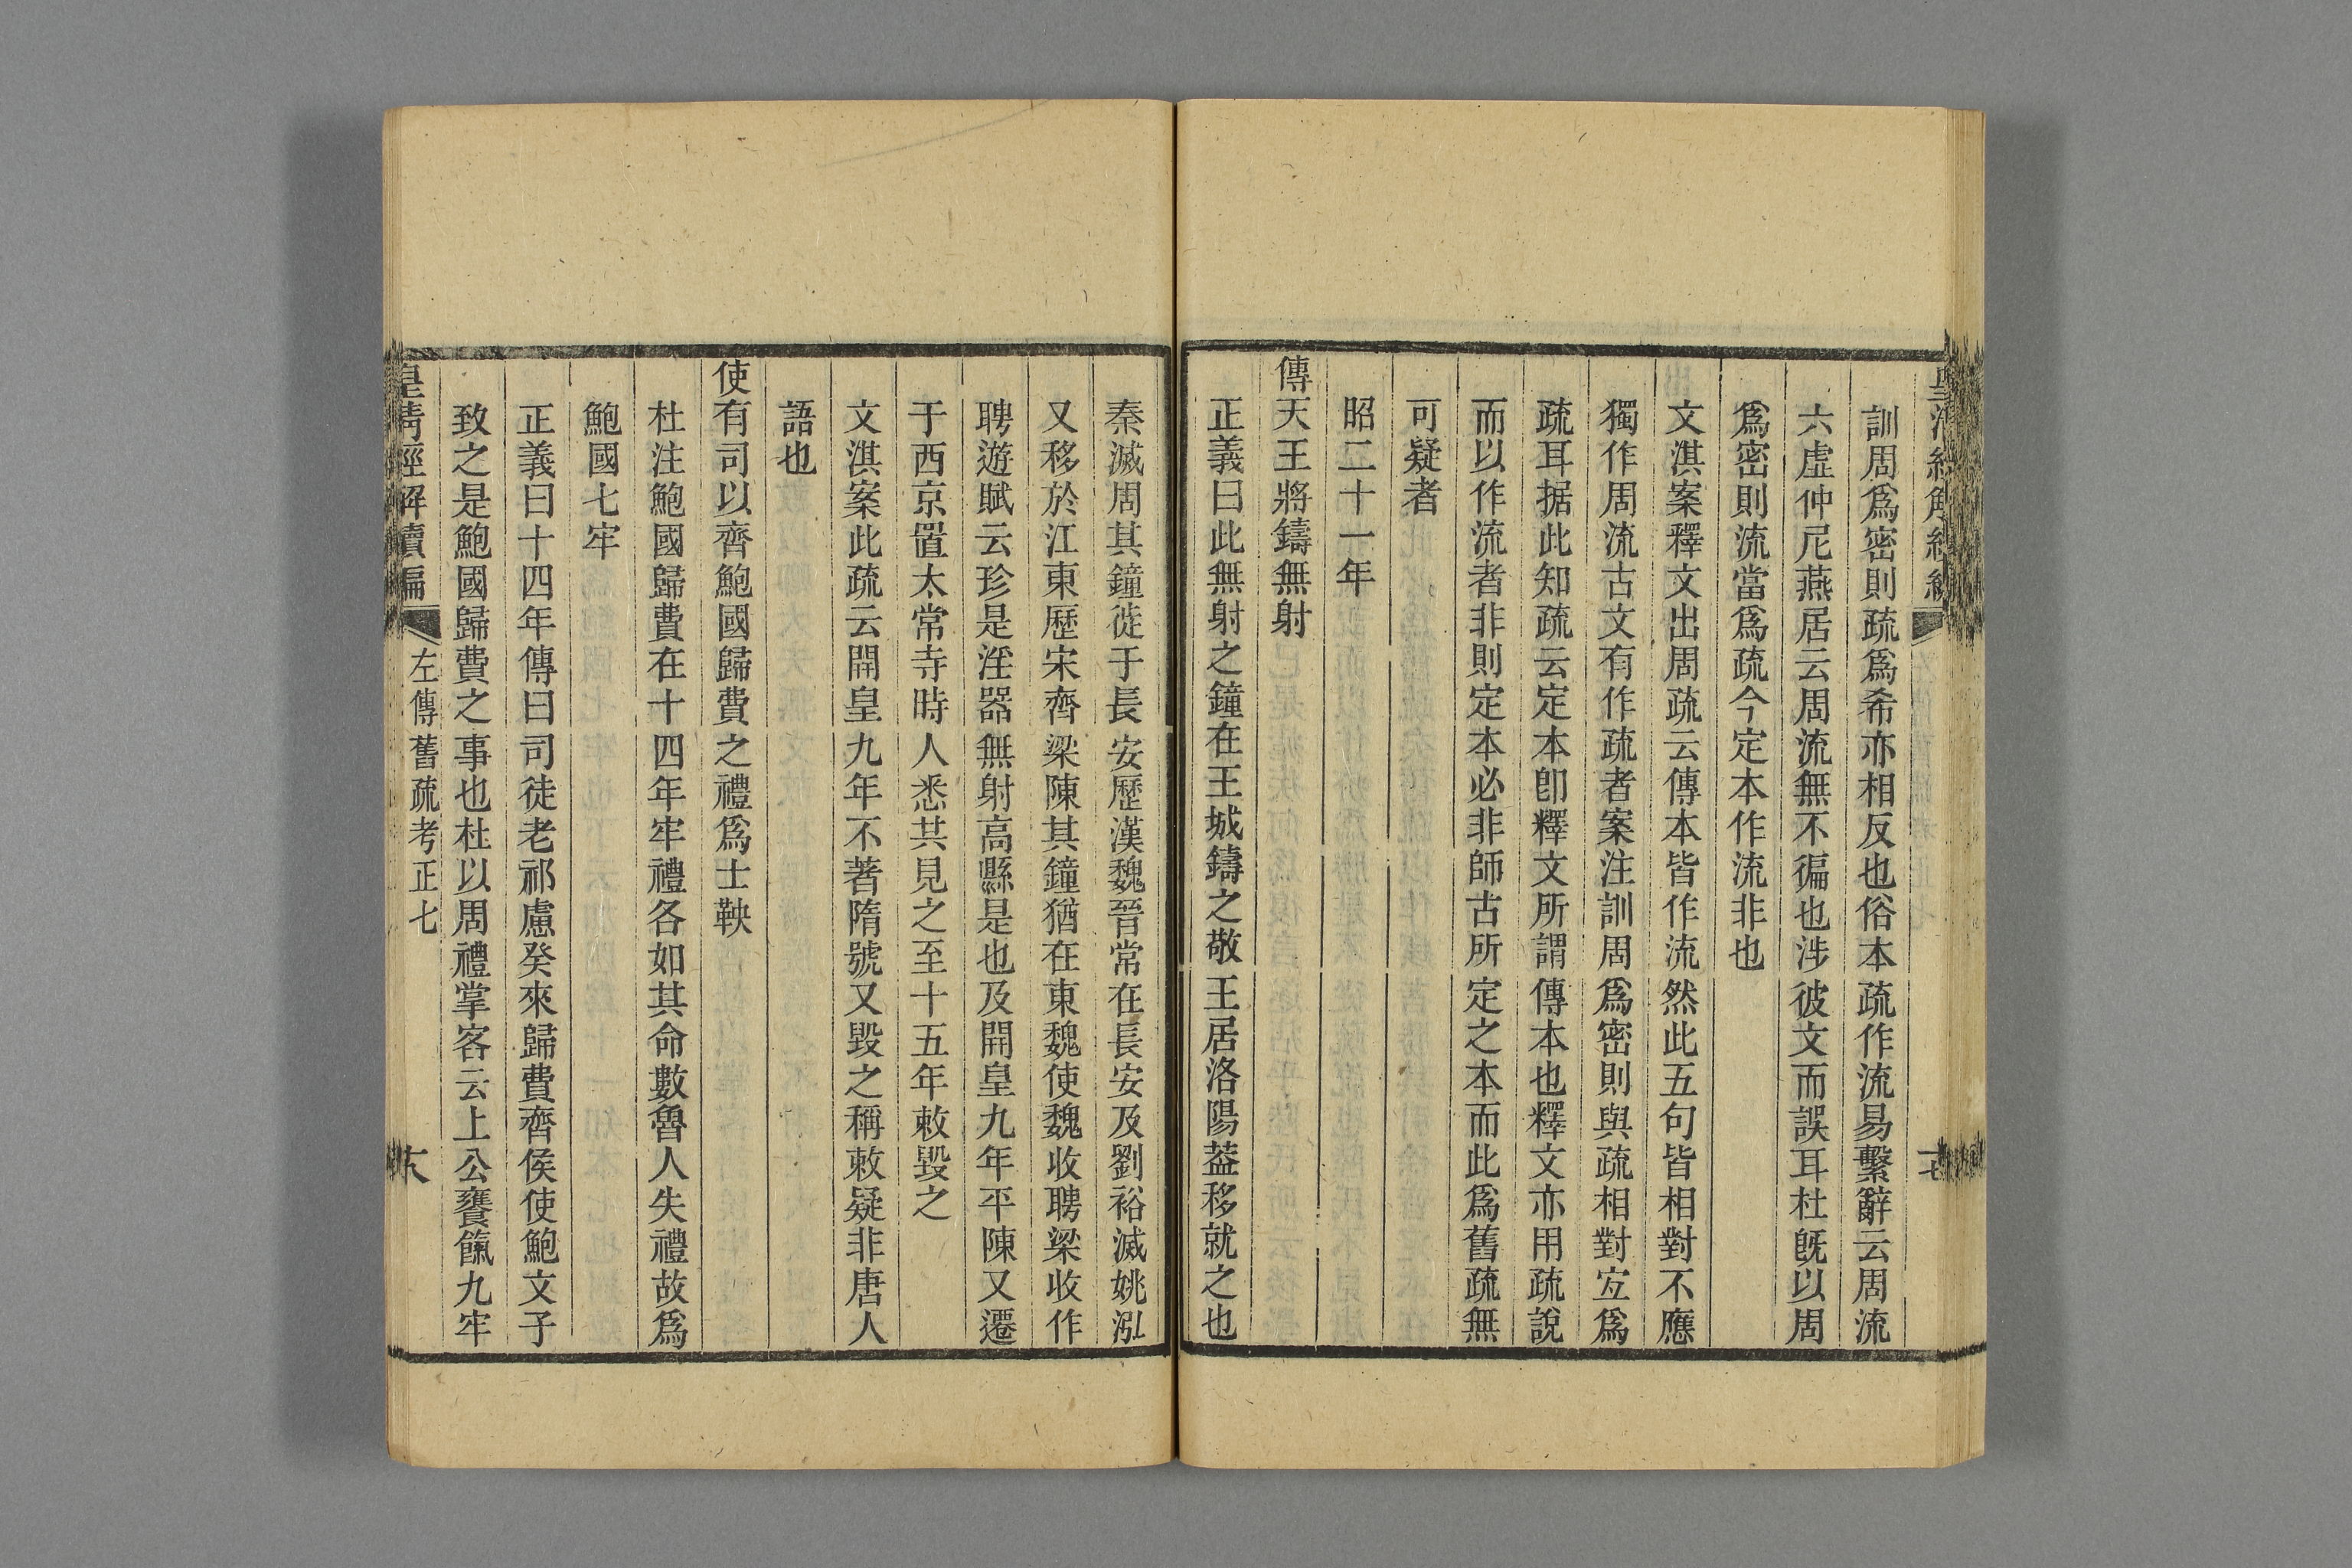 訓周爲密則疏爲希亦相反也俗本疏作流易繫辭云周流
六虛仲尼燕居云周流無不徧也涉彼文而誤耳杜旣以周
爲密則流當爲疏今定本作流非也
文淇案釋文出周疏云傳本皆作流然此五句皆相對不應
獨作周流古文有作疏者案注訓周爲密則與疏相對宐爲
疏耳据此知疏云定本卽釋文所謂傳本也釋文亦用疏說
而以作流者非則定本必非師古所定之本而此爲舊疏無
可疑者
昭二十一年
傳天王將鑄無射
正義曰此無射之鐘在王城鑄之敬王居洛陽葢移就之也
秦滅周其鐘徙于長安歷漢魏晉常在長安及劉裕滅姚泓
又移於江東歷宋齊梁陳其鐘猶在東魏使魏收聘梁收作
聘遊賦云珍是淫器無射高縣是也及開皇九年平陳又遷
于西京置太常寺時人悉共見之至十五年敕毀之
文淇案此疏云開皇九年不著隋號又毀之稱敕疑非唐人
語也
使有司以齊鮑國歸費之禮爲士鞅
杜注鮑國歸費在十四年牢禮各如其命數魯人失禮故爲
鮑國七牢
正義曰十四年傳曰司徒老祁慮癸來歸費齊侯使鮑文子
致之是鮑國歸費之事也杜以周禮掌客云上公饔餼九牢
皇清經解續編
左傳舊疏考正七